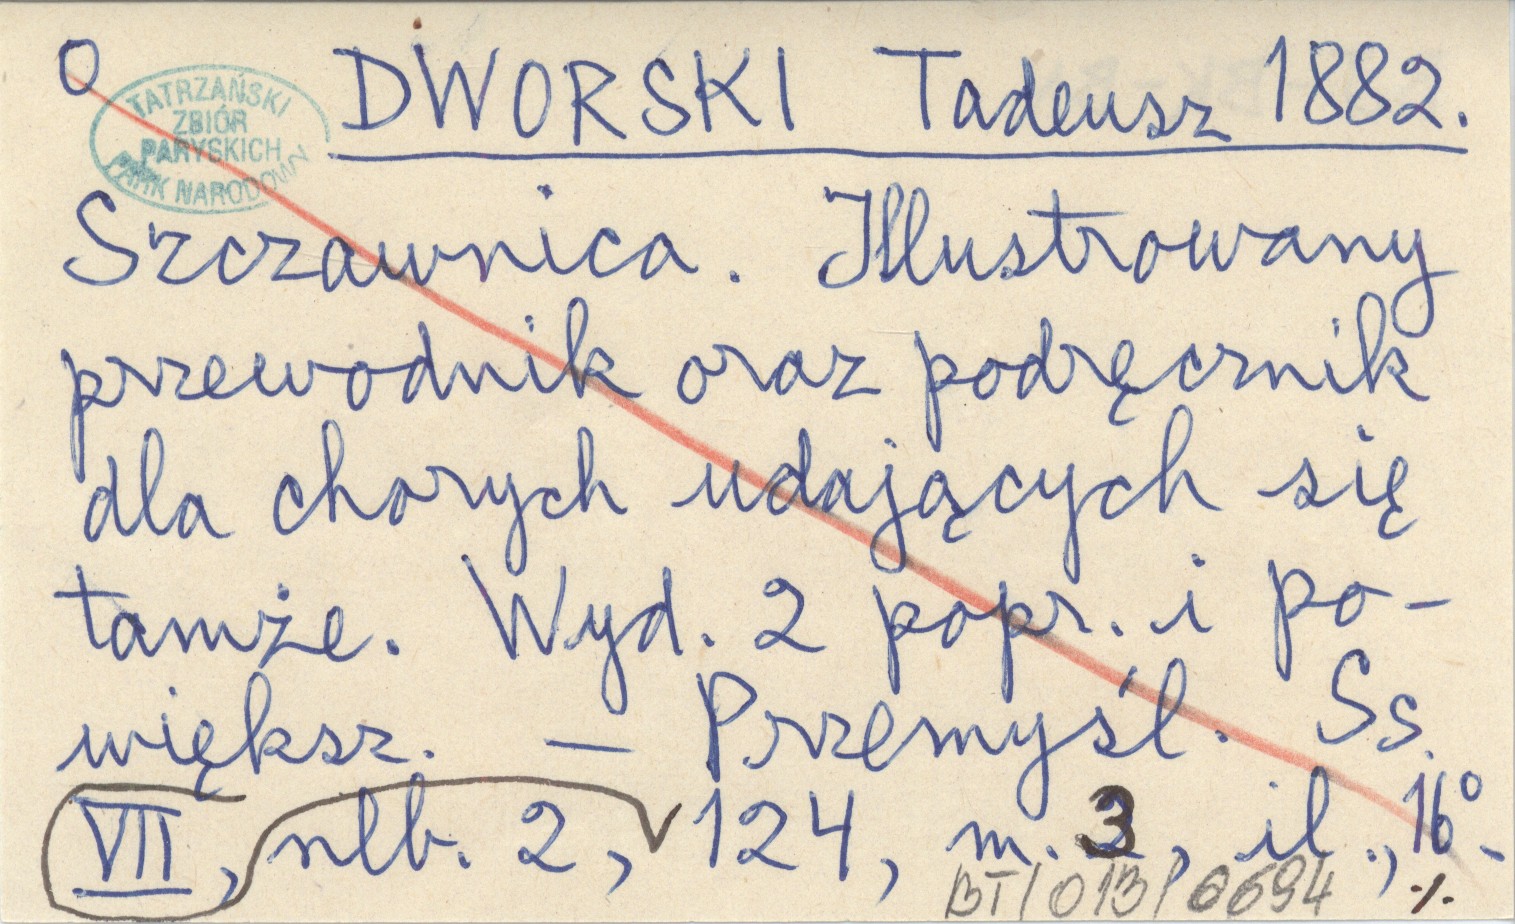 O DWORSKI Tadeusz 1882.
TATRZAŃSKI
ZBIÓR
PARYSKICH
PARK NARODOWY
Szczawnica. Illustrowany
przewodnik oraz podręcznik
dla chorych udających się
tamże. Wyd. 2 popr. i po-
większ. – Przemyśl. Ss.
VII, nlb. 2, 124, m. 3, il., 16º.
BT/013/0694 ./.